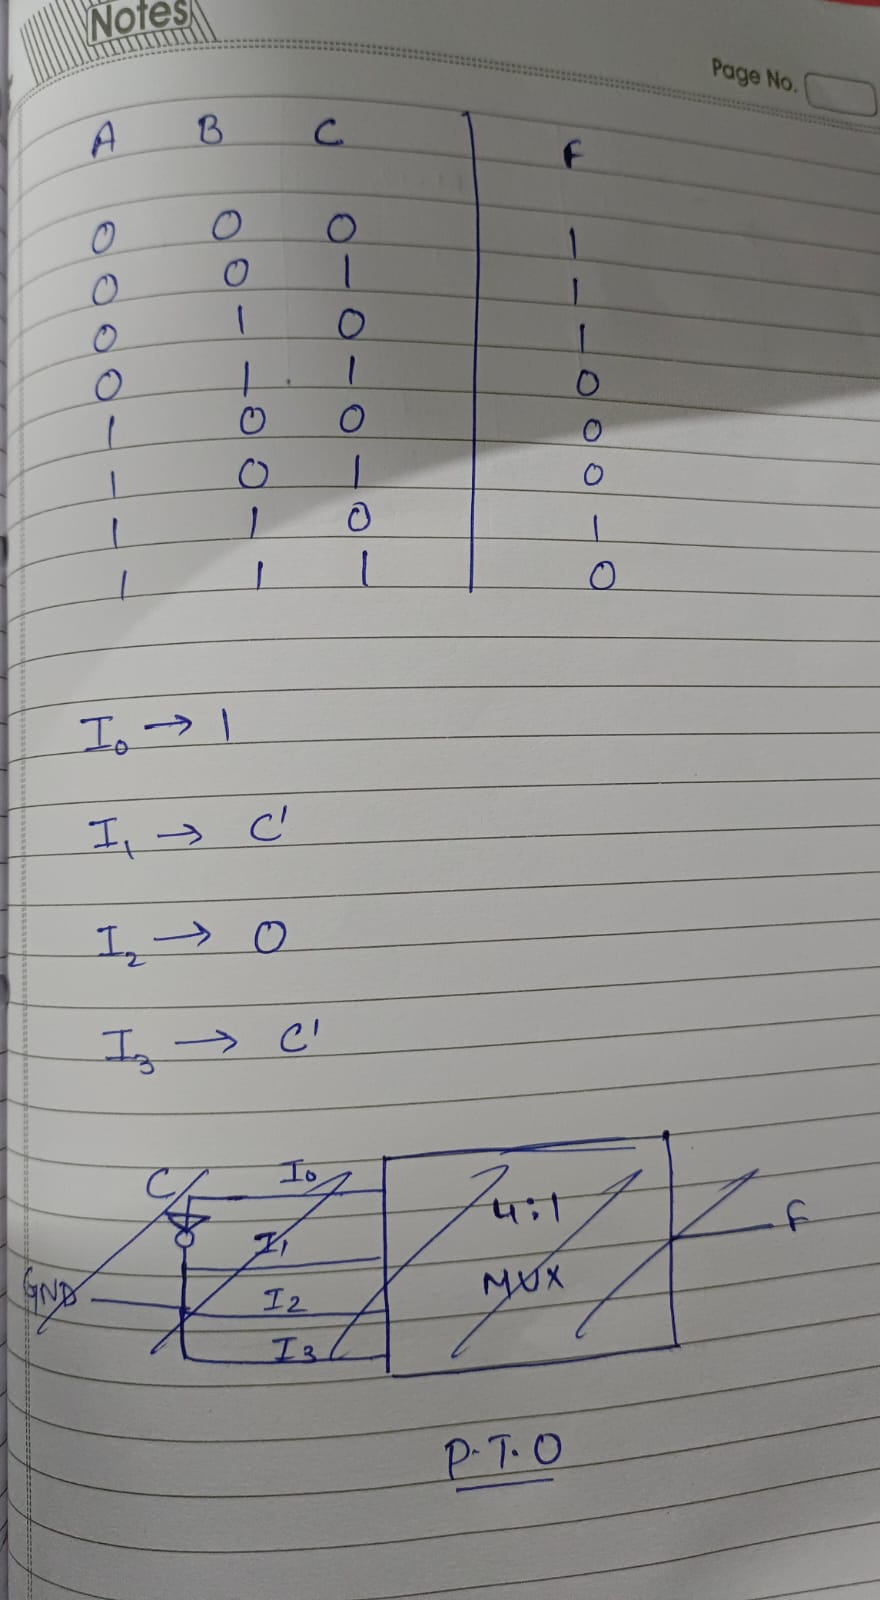 Notes
Page No.
A B C F
0 0 0 1
0 0 1 1
0 1 0 1
0 1 1 0
1 0 0 0
1 0 1 0
1 1 0 1
1 1 1 0
I₀ → 1
I₁ → C'
I₂ → 0
I₃ → C'
C I₀
4:1 F
I₁
MUX
GND I₂
I₃
P.T.O